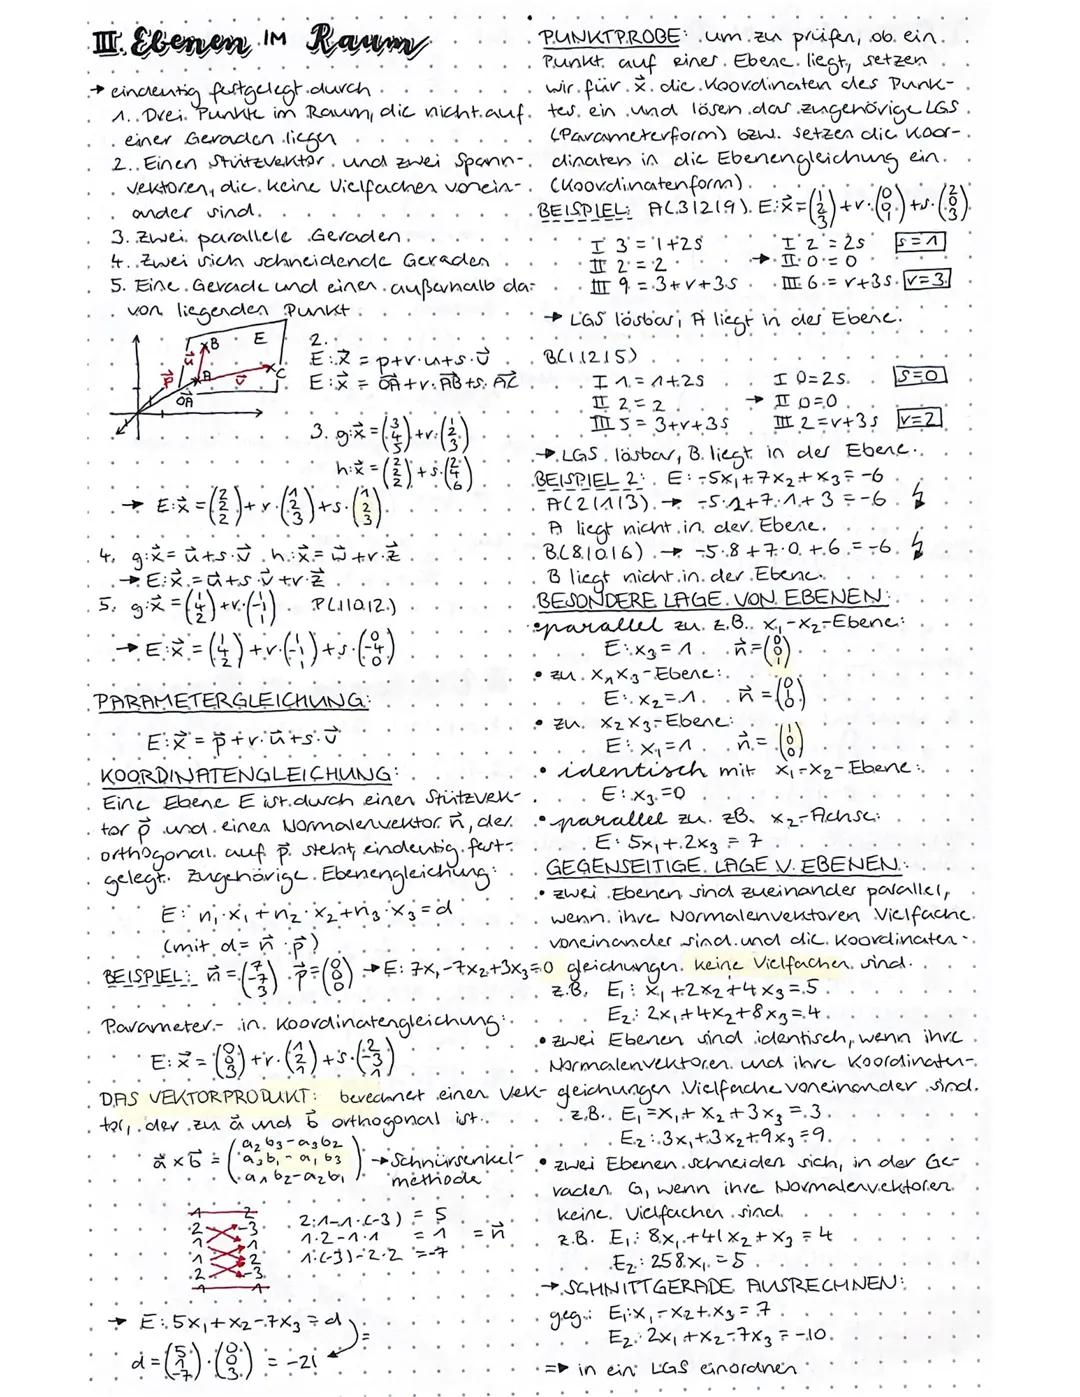 III. Ebenen IM Raum
→ eindeutig festgelegt durch
1. Drei Punkte im Raum, die nicht auf
einer Geraden liegen
2. Einen Stützvektor und zwei Spann-
vektoren, die keine Vielfachen vonein-
ander sind.
3. Zwei parallele Geraden.
4. Zwei sich schneidende Geraden
5. Eine Gerade und einen außerhalb da-
von liegenden Punkt.
B E
u
p A v C
OA
2.
E: x⃗ = p+r·u+s·v⃗
E: x⃗ = OA+r·AB+s·AC
3. g:x⃗ = (3 4 5) + r·(1 2 3)
h:x⃗ = (2 2 2) + s·(2 4 6)
→ E:x⃗ = (2 2 2) + r·(1 2 3) + s·(1 2 3)
4. g:x⃗ = u⃗+s·v⃗ h:x⃗ = w⃗+r·z⃗
→ E:x⃗ = u⃗+s·v⃗+r·z⃗
5. g:x⃗ = (1 4 2) + r·(1 -1 1) P(1|0|2)
→ E:x⃗ = (1 4 2) + r·(1 -1 1) + s·(0 -4 0)
PARAMETERGLEICHUNG:
E:x⃗ = p⃗+r·u⃗+s·v⃗
KOORDINATENGLEICHUNG:
Eine Ebene E ist durch einen Stützvek-
tor p⃗ und einen Normalenvektor n⃗, der
orthogonal auf p⃗ steht, eindeutig fest-
gelegt. Zugehörige Ebenengleichung:
E: n₁·x₁+n₂·x₂+n₃·x₃=d
(mit d= n⃗·p⃗)
BEISPIEL: n⃗ = (7 -7 3) p⃗ = (0 0 0) → E: 7x₁-7x₂+3x₃=0
Parameter- in Koordinatengleichung:
E:x⃗ = (0 0 3) + r·(1 2 1) + s·(2 -3 1)
DAS VEKTORPRODUKT: berechnet einen Vek-
tor, der zu a⃗ und b⃗ orthogonal ist.
a⃗ x b⃗ = (a₂b₃-a₃b₂ a₃b₁-a₁b₃ a₁b₂-a₂b₁) → Schnürsenkel-
methode
1 2
2 -3
1 1
1 2
2 -3
1 1
2·1-1·(-3) = 5
1·2-1·1 = 1 = n⃗
1·(-3)-2·2 = -7
→ E: 5x₁+x₂-7x₃ = d
d = (5 1 -7) · (0 0 3) = -21 =
PUNKTPROBE: um zu prüfen, ob ein
Punkt auf einer Ebene liegt, setzen
wir für x⃗ die Koordinaten des Punk-
tes ein und lösen das zugehörige LGS
(Parameterform) bzw. setzen die Koor-
dinaten in die Ebenengleichung ein.
(Koordinatenform).
BEISPIEL: A(3|2|9) E:x⃗=(1 2 3) + r·(0 0 1) + s·(2 0 3)
I 3 = 1+2s I 2 = 2s s=1
II 2 = 2 → II 0 = 0
III 9 = 3+r+3s III 6 = r+3s r=3
→ LGS lösbar, A liegt in der Ebene.
B(1|2|5)
I 1 = 1+2s I 0=2s s=0
II 2 = 2 → II 0=0
III 5 = 3+r+3s III 2=r+3s r=2
→ LGS lösbar, B liegt in der Ebene.
BEISPIEL 2: E: -5x₁+7x₂+x₃ = -6
A(2|1|3) → -5·2+7·1+3 = -6 ↯
A liegt nicht in der Ebene.
B(8|0|6) → -5·8+7·0+6 = -6 ↯
B liegt nicht in der Ebene.
BESONDERE LAGE VON EBENEN:
• parallel zu z.B. x₁-x₂-Ebene:
E: x₃ = 1 n⃗ = (0 0 1)
• zu x₁x₃-Ebene:
E: x₂ = 1 n⃗ = (0 1 0)
• zu x₂x₃-Ebene:
E: x₁ = 1 n⃗ = (1 0 0)
• identisch mit x₁-x₂-Ebene:
E: x₃=0
• parallel zu zB. x₂-Achse:
E: 5x₁+2x₃ = 7
GEGENSEITIGE LAGE V. EBENEN:
• zwei Ebenen sind zueinander parallel,
wenn ihre Normalenvektoren Vielfache
voneinander sind und die Koordinaten-
gleichungen keine Vielfachen sind.
z.B. E₁: x₁+2x₂+4x₃=5
E₂: 2x₁+4x₂+8x₃=4
• zwei Ebenen sind identisch, wenn ihre
Normalenvektoren und ihre Koordinaten-
gleichungen Vielfache voneinander sind.
z.B. E₁=x₁+x₂+3x₃=3
E₂: 3x₁+3x₂+9x₃=9
• zwei Ebenen schneiden sich, in der Ge-
raden G, wenn ihre Normalenvektoren
keine Vielfachen sind.
z.B. E₁: 8x₁+41x₂+x₃ = 4
E₂: 258x₁ = 5
→ SCHNITTGERADE AUSRECHNEN:
geg.: E₁: x₁-x₂+x₃ = 7
E₂: 2x₁+x₂-7x₃ = -10
⇒ in ein LGS einordnen